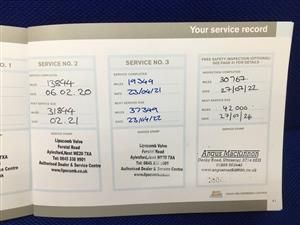 Your service record
O. 1
SERVICE NO. 2
SERVICE NO. 3
FREE SAFETY INSPECTION (OPTIONAL)
SEE PAGE 31 FOR DETAILS
SERVICE COMPLETED
SERVICE COMPLETED
INSPECTION COMPLETED
MILES
13844
MILES
19349
MILES
30767
DATE
06.02.20
DATE
23/04/21
DATE
27/07/22
NEXT SERVICE DUE
NEXT SERVICE DUE
NEXT SERVICE DUE
MILES
31844
MILES
37349
MILES
42000
DATE
02.21
DATE
23/04/22
DATE
27/07/24
SERVICE STAMP
SERVICE STAMP
SERVICE STAMP
Lipscomb Volvo
Forstal Road
Aylesford, Kent ME20 7XA
Tel: 0845 338 9901
Authorised Dealer & Service Centre
www.lipscomb.co.uk
Lipscomb Volvo
Forstal Road
Aylesford, Kent ME20 7XA
Authorised Dealer & Service Centre
www.lipscomb.co.uk
Angus MacKinnon
7XA
Centre